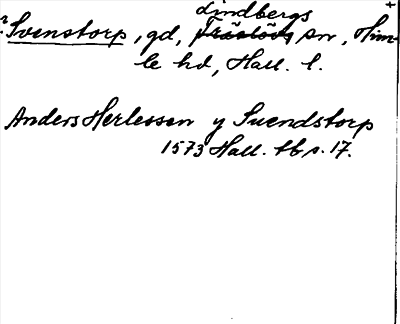 Lindbergs
Svenstorp, gd, Träslövs sn, Him-
le hd, Hall. l.
Anders Herlessen y Suendstorp
1573 Hall. tb s. 17.